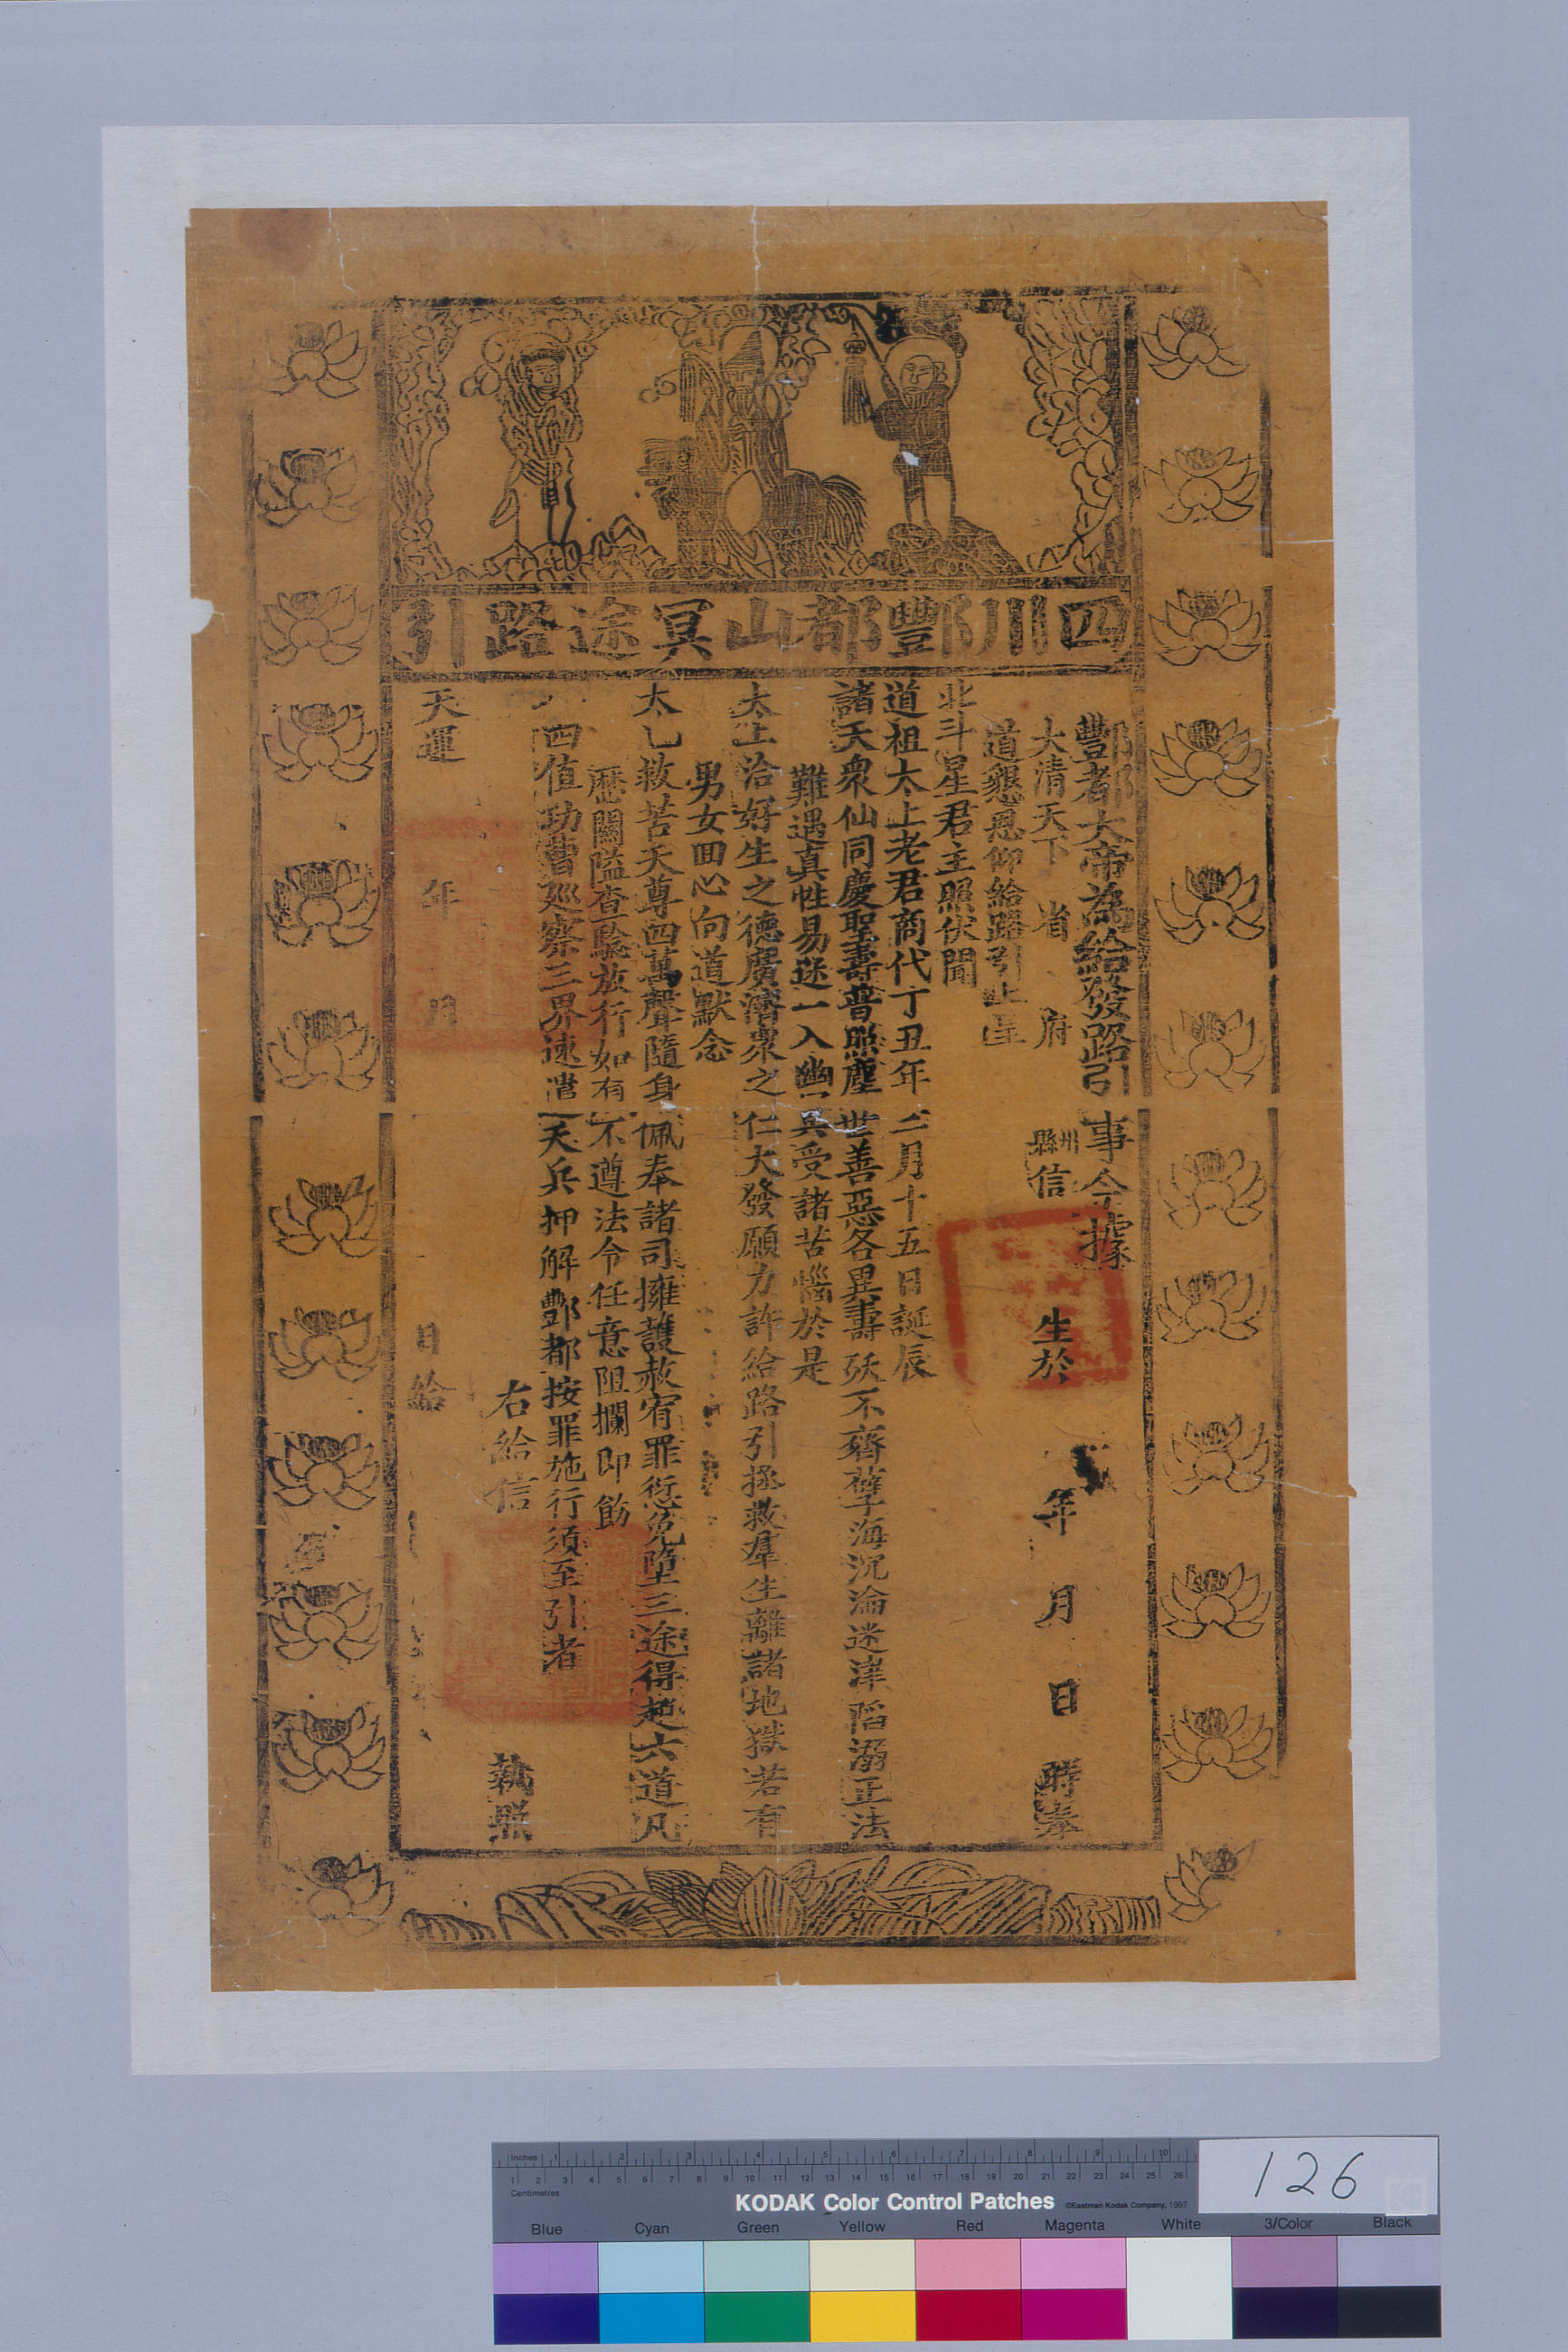 四川酆都山冥途路引
酆都大帝為給發路引事今據
大清天下 省 府 州縣信 生於 年 月 日 時奉
道懇恩仰給路引上呈
北斗星君主照伏聞
道祖太上老君商代丁丑年二月十五日誕辰
諸天眾仙同慶聖壽普照塵世善惡各異壽殀不齊孽海沉淪迷津陷溺正法
難遇真性易迷一入幽冥受諸苦惱於是
太上洽好生之德廣濟眾之仁大發願力許給路引拯救羣生離諸地獄若有
男女回心向道默念
太乙救苦天尊四萬聲隨身佩奉諸司擁護赦宥罪愆免墮三途得超六道凡
歷關隘查驗放行如有不遵法令任意阻攔即飭
四值功曹巡察三界速遣天兵押解酆都按罪施行須至引者
右給信 執照
天運 年 月 日給
126
Inches 1 2 3 4 5 6 7 8 9 10
1 2 3 4 5 6 7 8 9 10 11 12 13 14 15 16 17 18 19 20 21 22 23 24 25 26
Centimetres
KODAK Color Control Patches ©Eastman Kodak Company, 1997
Blue Cyan Green Yellow Red Magenta White 3/Color Black